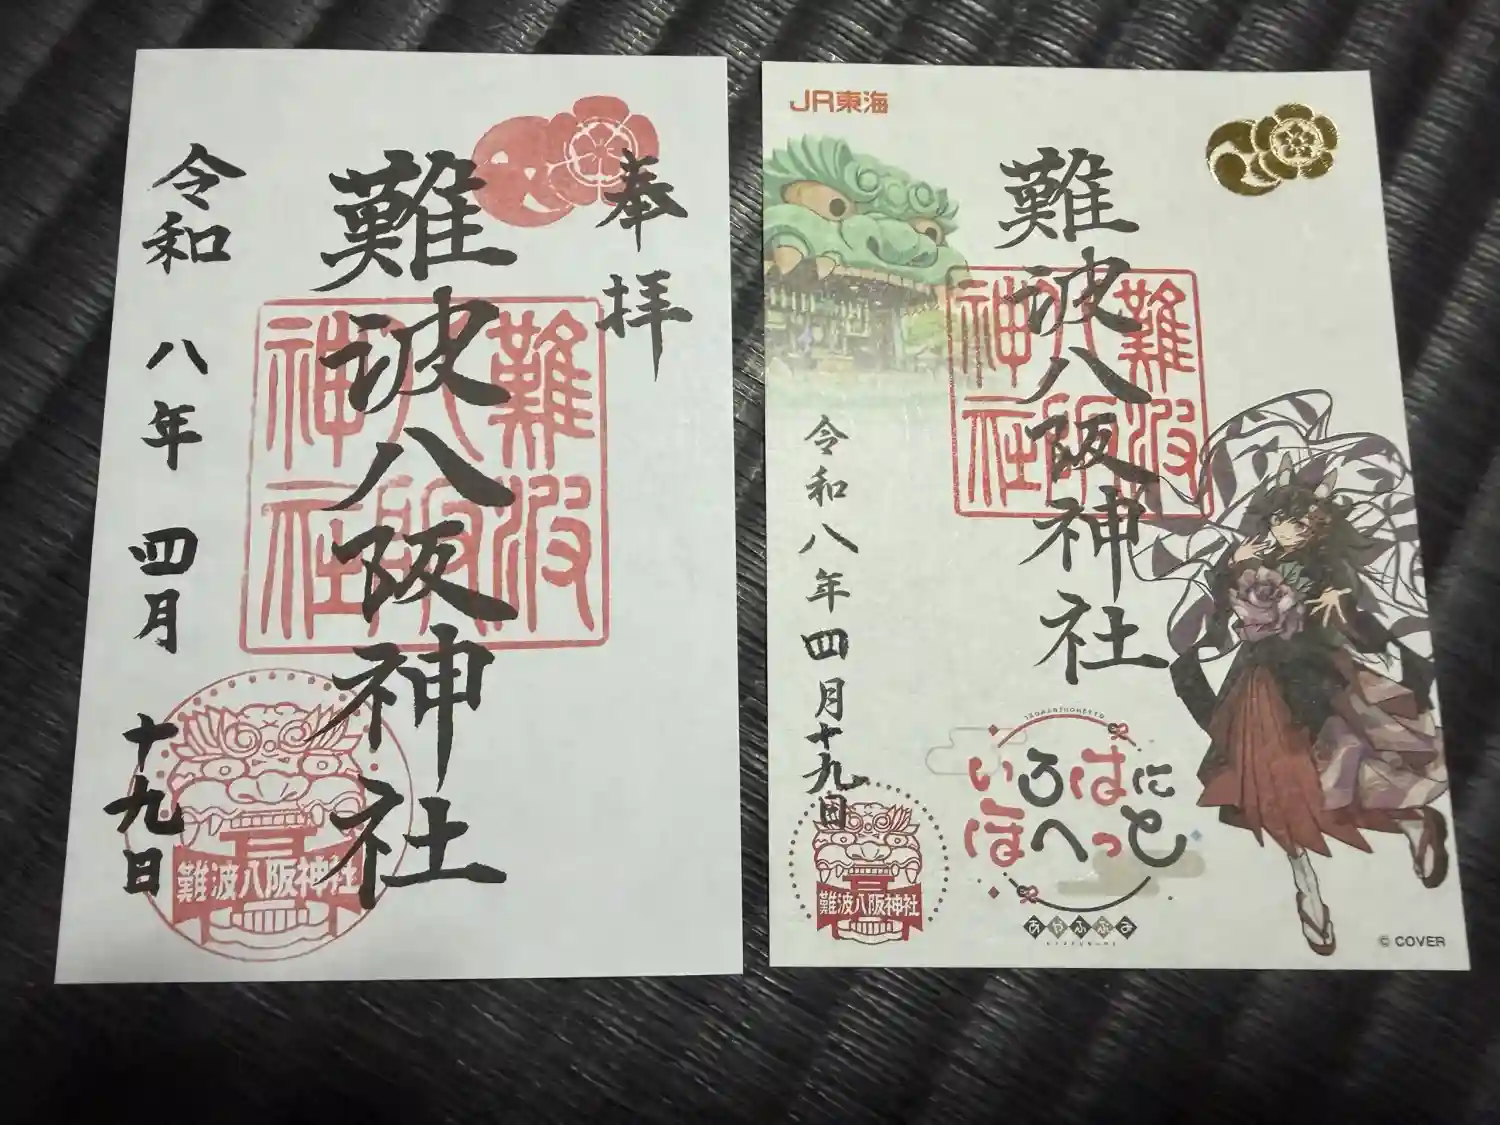 奉拝
難波八阪神社
令和八年四月十九日
難波八阪神社
難波八阪神社
JR東海
難波八阪神社
難波八阪神社
令和八年四月十九日
難波八阪神社
いろはに
ほへっと
あやふぶみ
© COVER